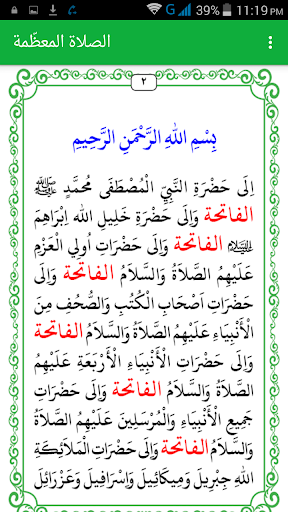 39% 11:19 PM
الصلاة المعظّمة
٢
بِسْمِ اللهِ الرَّحْمَنِ الرَّحِيمِ
اِلَى حَضْرَةِ النَّبِيِّ الْمُصْطَفَى مُحَمَّدٍ ﷺ
الفاتحة وَاِلَى حَضْرَةِ خَلِيلِ اللهِ اِبْرَاهِمَ
ﷺ الفاتحة وَاِلَى حَضْرَاتِ اُولِي الْعَزْمِ
عَلَيْهِمُ الصَّلَاةُ وَالسَّلَامُ الفاتحة وَاِلَى
حَضْرَاتِ اَصْحَابِ الْكُتُبِ وَالصُّحُفِ مِنَ
الْأَنْبِيَاءِ عَلَيْهِمُ الصَّلَاةُ وَالسَّلَامُ الفاتحة
وَاِلَى حَضْرَاتِ الْأَنْبِيَاءِ الْأَرْبَعَةِ عَلَيْهِمُ
الصَّلَاةُ وَالسَّلَامُ الفاتحة وَاِلَى حَضْرَاتِ
جَمِيعِ الْأَنْبِيَاءِ وَالْمُرْسَلِينَ عَلَيْهِمُ الصَّلَاةُ
وَالسَّلَامُ الفاتحة وَاِلَى حَضْرَاتِ الْمَلَائِكَةِ
اللهِ جِبْرِيلَ وَمِيكَائِيلَ وَاِسْرَافِيلَ وَعَزْرَائِلَ